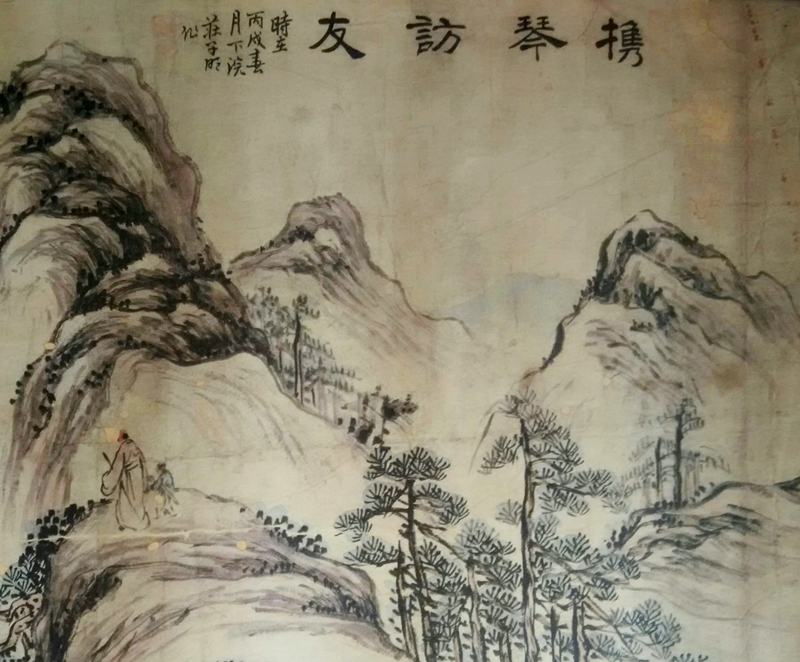 携琴訪友
時在
丙戌春
月下浣
莊子明
作